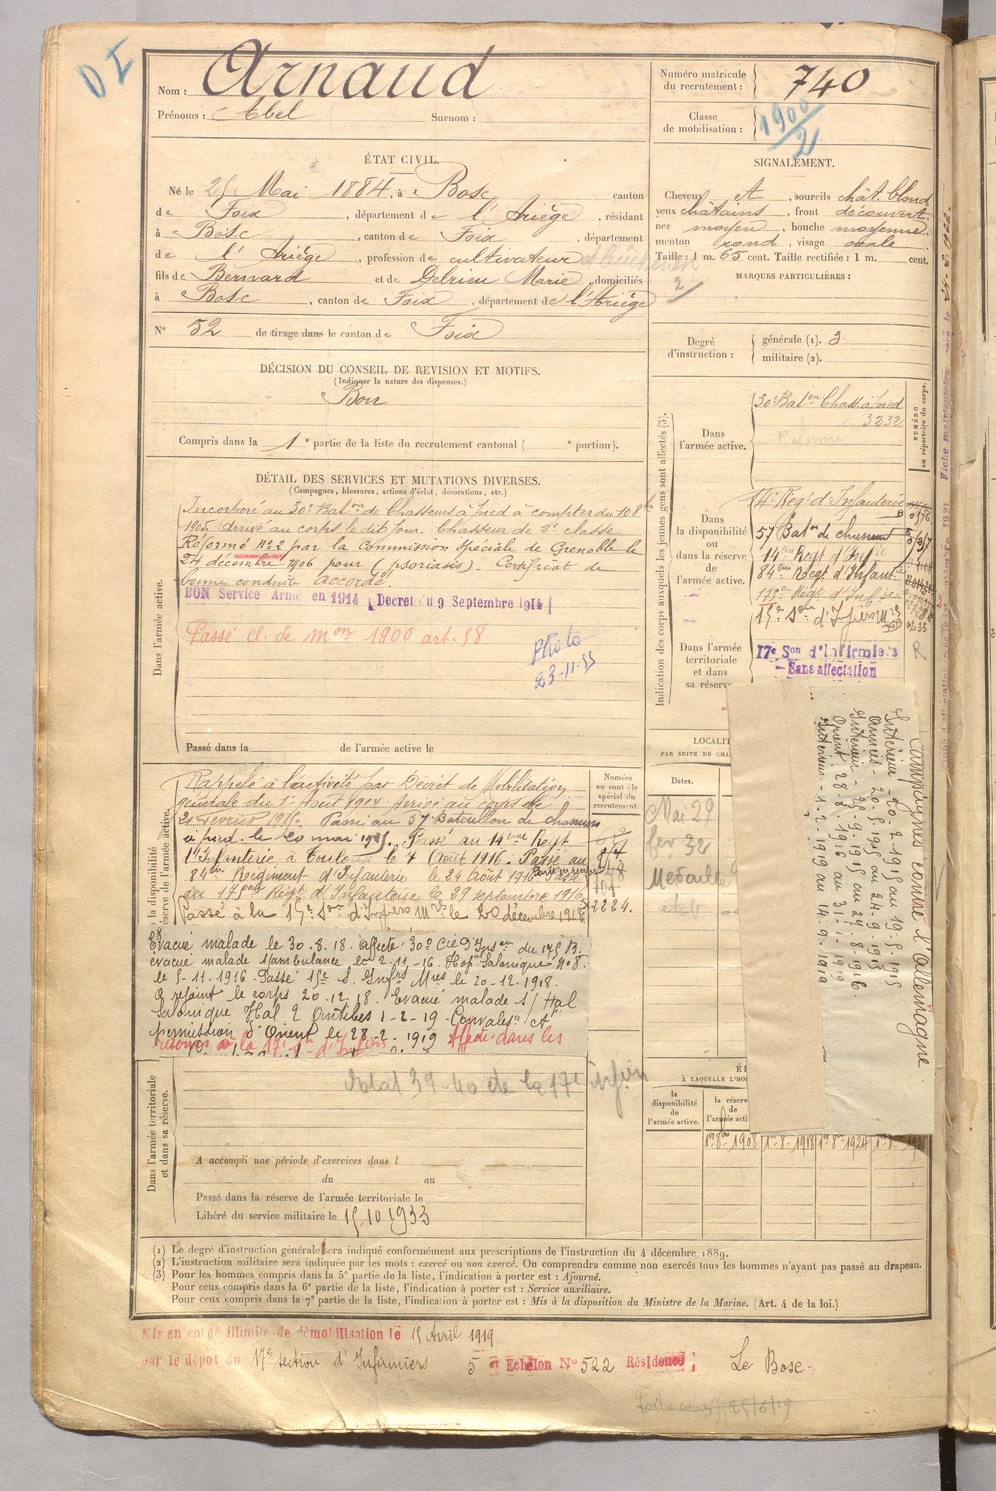 D I
Nom : Arnaud
Prénoms : Abel Surnom :
Numéro matricule du recrutement : 740
Classe de mobilisation : 1900/2
ÉTAT CIVIL.
Né le 25 Mai 1884, à Bosc canton
de Foix, département de l'Ariège, résidant
à Bosc, canton de Foix, département
de l'Ariège, profession de cultivateur
fils de Bernard et de Delrieu Marie, domiciliés
à Bosc, canton de Foix, département de l'Ariège
N° 52 de tirage dans le canton de Foix
SIGNALEMENT.
Cheveux et, sourcils chât. blond
yeux châtains, front découvert
nez moyen, bouche moyenne
menton rond, visage ovale
Taille : 1 m. 65 cent. Taille rectifiée : 1 m. cent.
MARQUES PARTICULIÈRES :
2
Degré d'instruction : générale (1). 3
militaire (2).
DÉCISION DU CONSEIL DE REVISION ET MOTIFS.
(Indiquer la nature des dispenses.)
Bon
Compris dans la 1e partie de la liste du recrutement cantonal ( e portion).
DÉTAIL DES SERVICES ET MUTATIONS DIVERSES.
(Campagnes, blessures, actions d'éclat, décorations, etc.)
Dans l'armée active.
Incorporé au 30e Baton de Chasseurs à pied à compter du 10 8bre
1905 Arrivé au corps le dit jour. Chasseur de 2e classe
Réformé N°2 par la Commission Spéciale de Grenoble le
24 décembre 1906 pour (psoriasis). Certificat de
bonne conduite accordé.
BON Service Armé en 1914 (Decret du 9 Septembre 1914)
Passé cl. de mon 1900 art. 58
Photo
23-11-55
Passé dans la de l'armée active le
Indication des corps auxquels les jeunes gens sont affectés (3).
Dans l'armée active.
30e Baton Chass. à pied
3232
Dans la disponibilité ou dans la réserve de l'armée active.
14e Reg. d'Infanterie
57 Baton de chasseurs
14eme Regt d'Infie
84eme Régt d'Infantie
175e Régt d'Infie
15e Son d'Infiers Mres
Dans l'armée territoriale et dans sa réserve
17e Son d'Infirmiers
— Sans affectation
Rappelé à l'activité par Décret de Mobilisation
générale du 1er Août 1914. Arrivé au corps le
20 février 1915. Passé au 57 Bataillon de chasseurs
à pied le 20 mai 1915. Passé au 14eme Regt
d'Infanterie à Toulouse le 4 Août 1916. Passé au
84eme Régiment d'Infanterie le 24 août 1916. Passé
au 175eme Régt d'Infanterie le 29 septembre 1916.
Passé à la 15e Son d'Infiers Mres le 20 décembre 1918.
Numéro au contrôle spécial du recrutement.
2224.
Evacué malade le 30.8.18. Affecté 30e Cie D'Inson du 175 RI.
évacué malade s/ambulance le 2-11-16. Hop. Salonique N°8.
le 5-11-1916. Passé 15e S. Infrs Mres le 20-12-1918.
A rejoint le corps 20-12-18. Evacué malade s/ Hal
Salonique Hal 2 Antibes 1-2-19. Convalesce et
permission d'Orient le 28-2-1919 Affecté dans les
LOCALIT
PAR SUITE DE CHA
Dates.
Mai 29
fev 32
Medaille
Campagnes contre l'Allemagne
Intérieur - 20-2-1915 au 19-5-1915
armées - 20-5-1915 au 24-9-1915
Intérieur - 25-9-1915 au 27-8-1916
Orient - 28-8-1916 au 31-1-1919
Intérieur - 1-2-1919 au 14-9-1919
Dans l'armée territoriale et dans sa réserve.
39-40 de la 17e Infirm
A accompli une période d'exercices dans l
du au
Passé dans la réserve de l'armée territoriale le
Libéré du service militaire le 15.10.1933
À LAQUELLE L'HO
la disponibilité de l'armée active.
la réserve de l'armée acti
1er 8bre 1908
1-8-1918
1er-8-1924
(1) Le degré d'instruction générale sera indiqué conformément aux prescriptions de l'instruction du 4 décembre 1889.
(2) L'instruction militaire sera indiquée par les mots : exercé ou non exercé. On comprendra comme non exercés tous les hommes n'ayant pas passé au drapeau.
(3) Pour les hommes compris dans la 5e partie de la liste, l'indication à porter est : Ajourné.
Pour ceux compris dans la 6e partie de la liste, l'indication à porter est : Service auxiliaire.
Pour ceux compris dans la 7e partie de la liste, l'indication à porter est : Mis à la disposition du Ministre de la Marine. (Art. 4 de la loi.)
Mis en congé illimité de démobilisation le 15 Avril 1919
par le dépôt du 17e section d'Infirmiers 5 et Echelon N° 522 Résidence : Le Bosc.